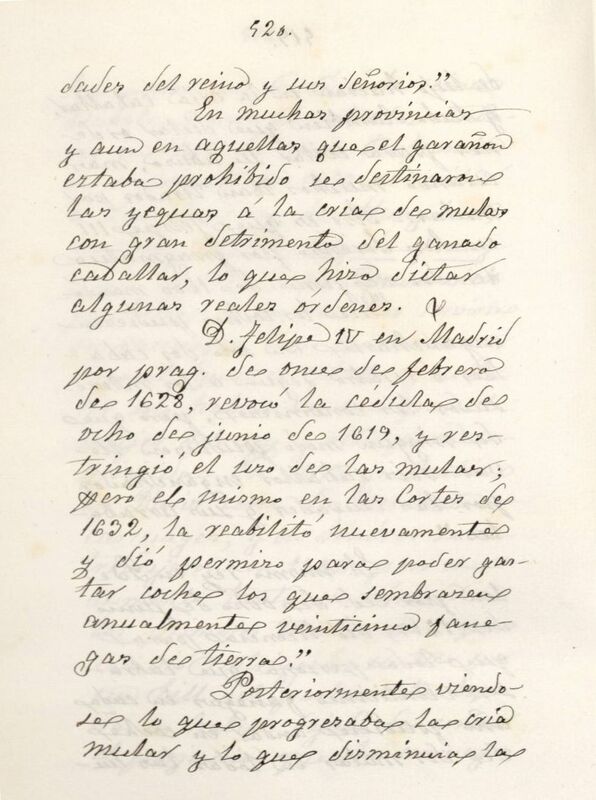 520.
dades del reino y sus señorios."
En muchas provincias
y aun en aquellas que el garañon
estaba prohibido se destinaron
las yeguas á la cria de mulas
con gran detrimento del ganado
caballar, lo que hizo dictar
algunas reales órdenes.
D. Felipe IV en Madrid
por prag. de once de febrero
de 1628, revocó la cédula de
ocho de junio de 1619, y res-
tringió el uso de las mulas;
pero el mismo en las Cortes de
1632, la reabilitó nuevamente
y dió permizo para poder gas-
tar coche los que sembrasen
anualmente veinticinco fane-
gas de tierra."
Posteriormente viendo-
se lo que progresaba la cria
mular y lo que disminuia la